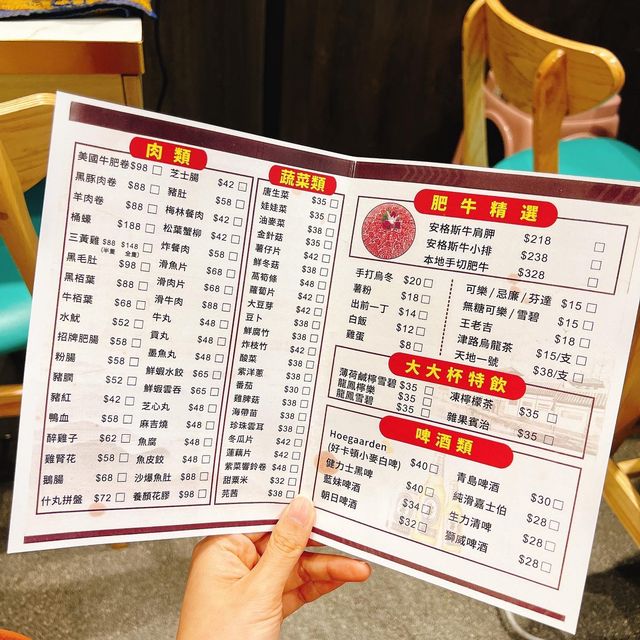 肉類
美國牛肥卷 $98
黑豚肉卷 $88
羊肉卷 $88
桶蠔 $188
三黃雞 $88 (半隻) $148 (全隻)
黑毛肚 $98
黑栢葉 $88
牛栢葉 $68
水魷 $52
招牌肥腸 $58
粉腸 $58
豬膶 $52
豬紅 $42
鴨血 $58
醉雞子 $62
雞腎花 $58
鵝腸 $68
什丸拼盤 $72
芝士腸 $42
豬肚 $58
梅林餐肉 $42
松葉蟹柳 $42
炸餐肉 $58
滑魚片 $68
滑肉片 $68
滑牛肉 $88
牛丸 $48
貢丸 $48
墨魚丸 $48
鮮蝦水餃 $65
鮮蝦雲吞 $65
芝心丸 $48
麻吉燒 $48
魚腐 $48
魚皮餃 $48
沙爆魚肚 $88
養顏花膠 $98
蔬菜類
唐生菜 $35
娃娃菜 $35
油麥菜 $38
金針菇 $35
薯仔片 $42
鮮冬菇 $38
萵筍條 $48
蘿蔔片 $42
大豆芽 $42
豆卜 $38
鮮腐竹 $38
炸枝竹 $42
酸菜 $38
紫洋蔥 $38
番茄 $30
雞脾菇 $38
海帶苗 $38
珍珠雲耳 $38
冬瓜片 $42
蓮藕片 $42
紫菜響鈴卷 $48
甜粟米 $32
芫茜 $38
肥牛精選
安格斯牛肩胛 $218
安格斯牛小排 $238
本地手切肥牛 $328
手打烏冬 $20
薯粉 $18
出前一丁 $14
白飯 $12
雞蛋 $8
可樂/忌廉/芬達 $15
無糖可樂/雪碧 $15
王老吉 $18
津路烏龍茶 $15/支
天地一號 $38/支
大大杯特飲
薄荷鹹檸雪碧 $35
龍鳳檸樂 $35
龍鳳雪碧 $35
凍檸檬茶 $35
雜果賓治 $35
啤酒類
Hoegaarden
(好卡頓小麥白啤) $40
健力士黑啤 $40
藍妹啤酒 $34
朝日啤酒 $32
青島啤酒 $30
純滑嘉士伯 $28
生力清啤 $28
獅威啤酒 $28